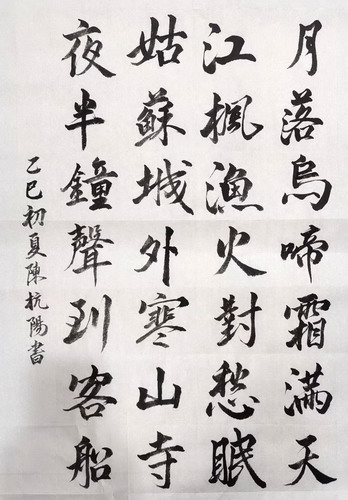 月落烏啼霜滿天
江楓漁火對愁眠
姑蘇城外寒山寺
夜半鐘聲到客船
乙巳初夏陳杭陽書